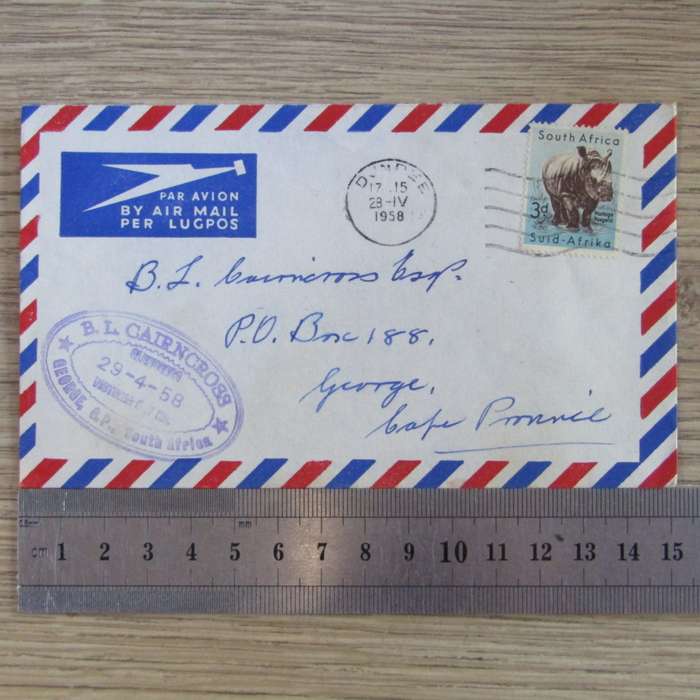 PAR AVION
BY AIR MAIL
PER LUGPOS
DUNDEE
17 15
28-IV
1958
South Africa
3d
Postage
Suid-Afrika
B. L. Cairncross Esq.
P.O. Box 188.
George,
Cape Province
B. L. CAIRNCROSS
29-4-58
GEORGE, C.P., South Africa
0.5mm
mm
cm 1 2 3 4 5 6 7 8 9 10 11 12 13 14 15